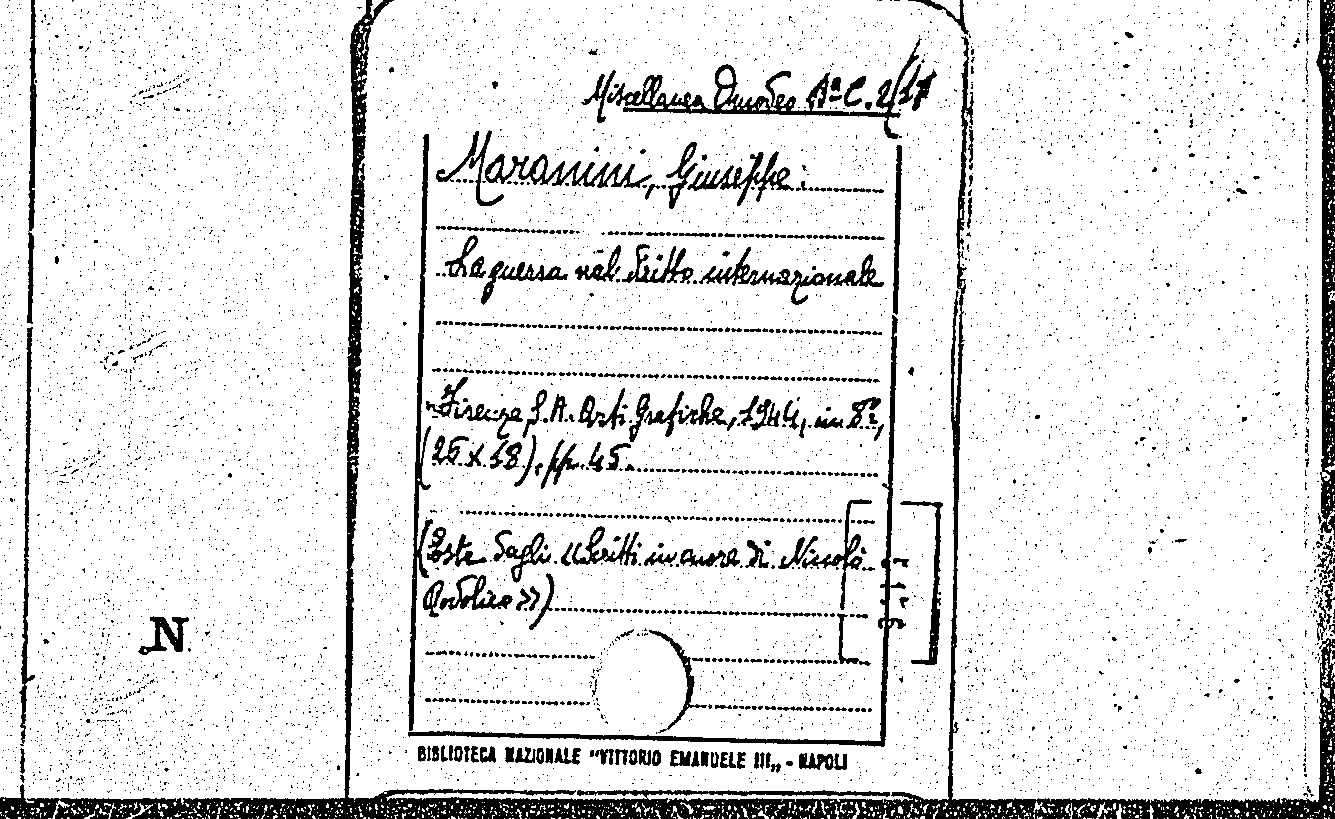 Miscellanea Omodeo Bª C. 2/17
Maranini, Giuseppe.
La guerra nel diritto internazionale
Firenze, S.A. Arti Grafiche, 1944, in 8º,
(25 x 18), pp. 45.
(Estr. dagli «Scritti in onore di Niccolò
Rodolico»)
N
BIBLIOTECA NAZIONALE "VITTORIO EMANUELE III„ - NAPOLI